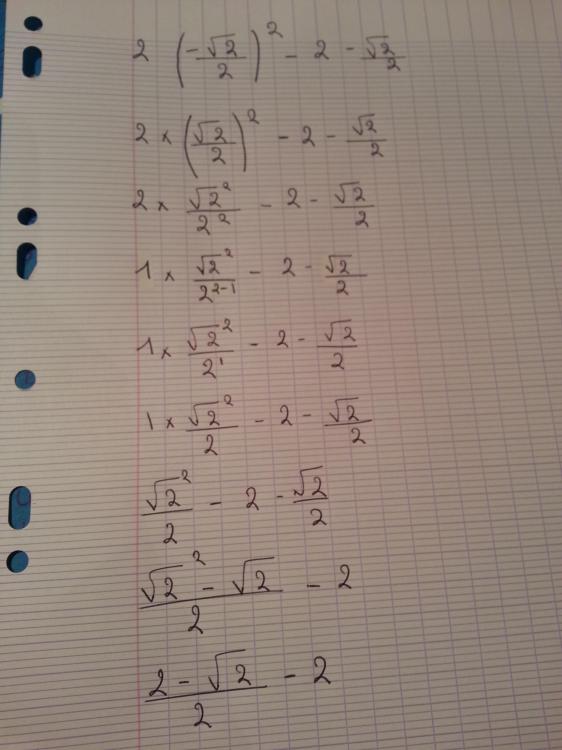 2 (-√2/2)² - 2 - √2/2
2 × (√2/2)² - 2 - √2/2
2 × √2²/2² - 2 - √2/2
1 × √2²/2²⁻¹ - 2 - √2/2
1 × √2²/2¹ - 2 - √2/2
1 × √2²/2 - 2 - √2/2
√2²/2 - 2 - √2/2
(√2² - √2)/2 - 2
(2 - √2)/2 - 2